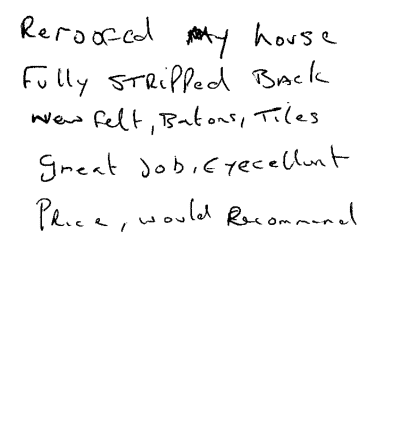 Reroofed My house
Fully STRipped BACK
New felt, Batons, Tiles
Great Job, Eyecellunt
Price, would Recommend